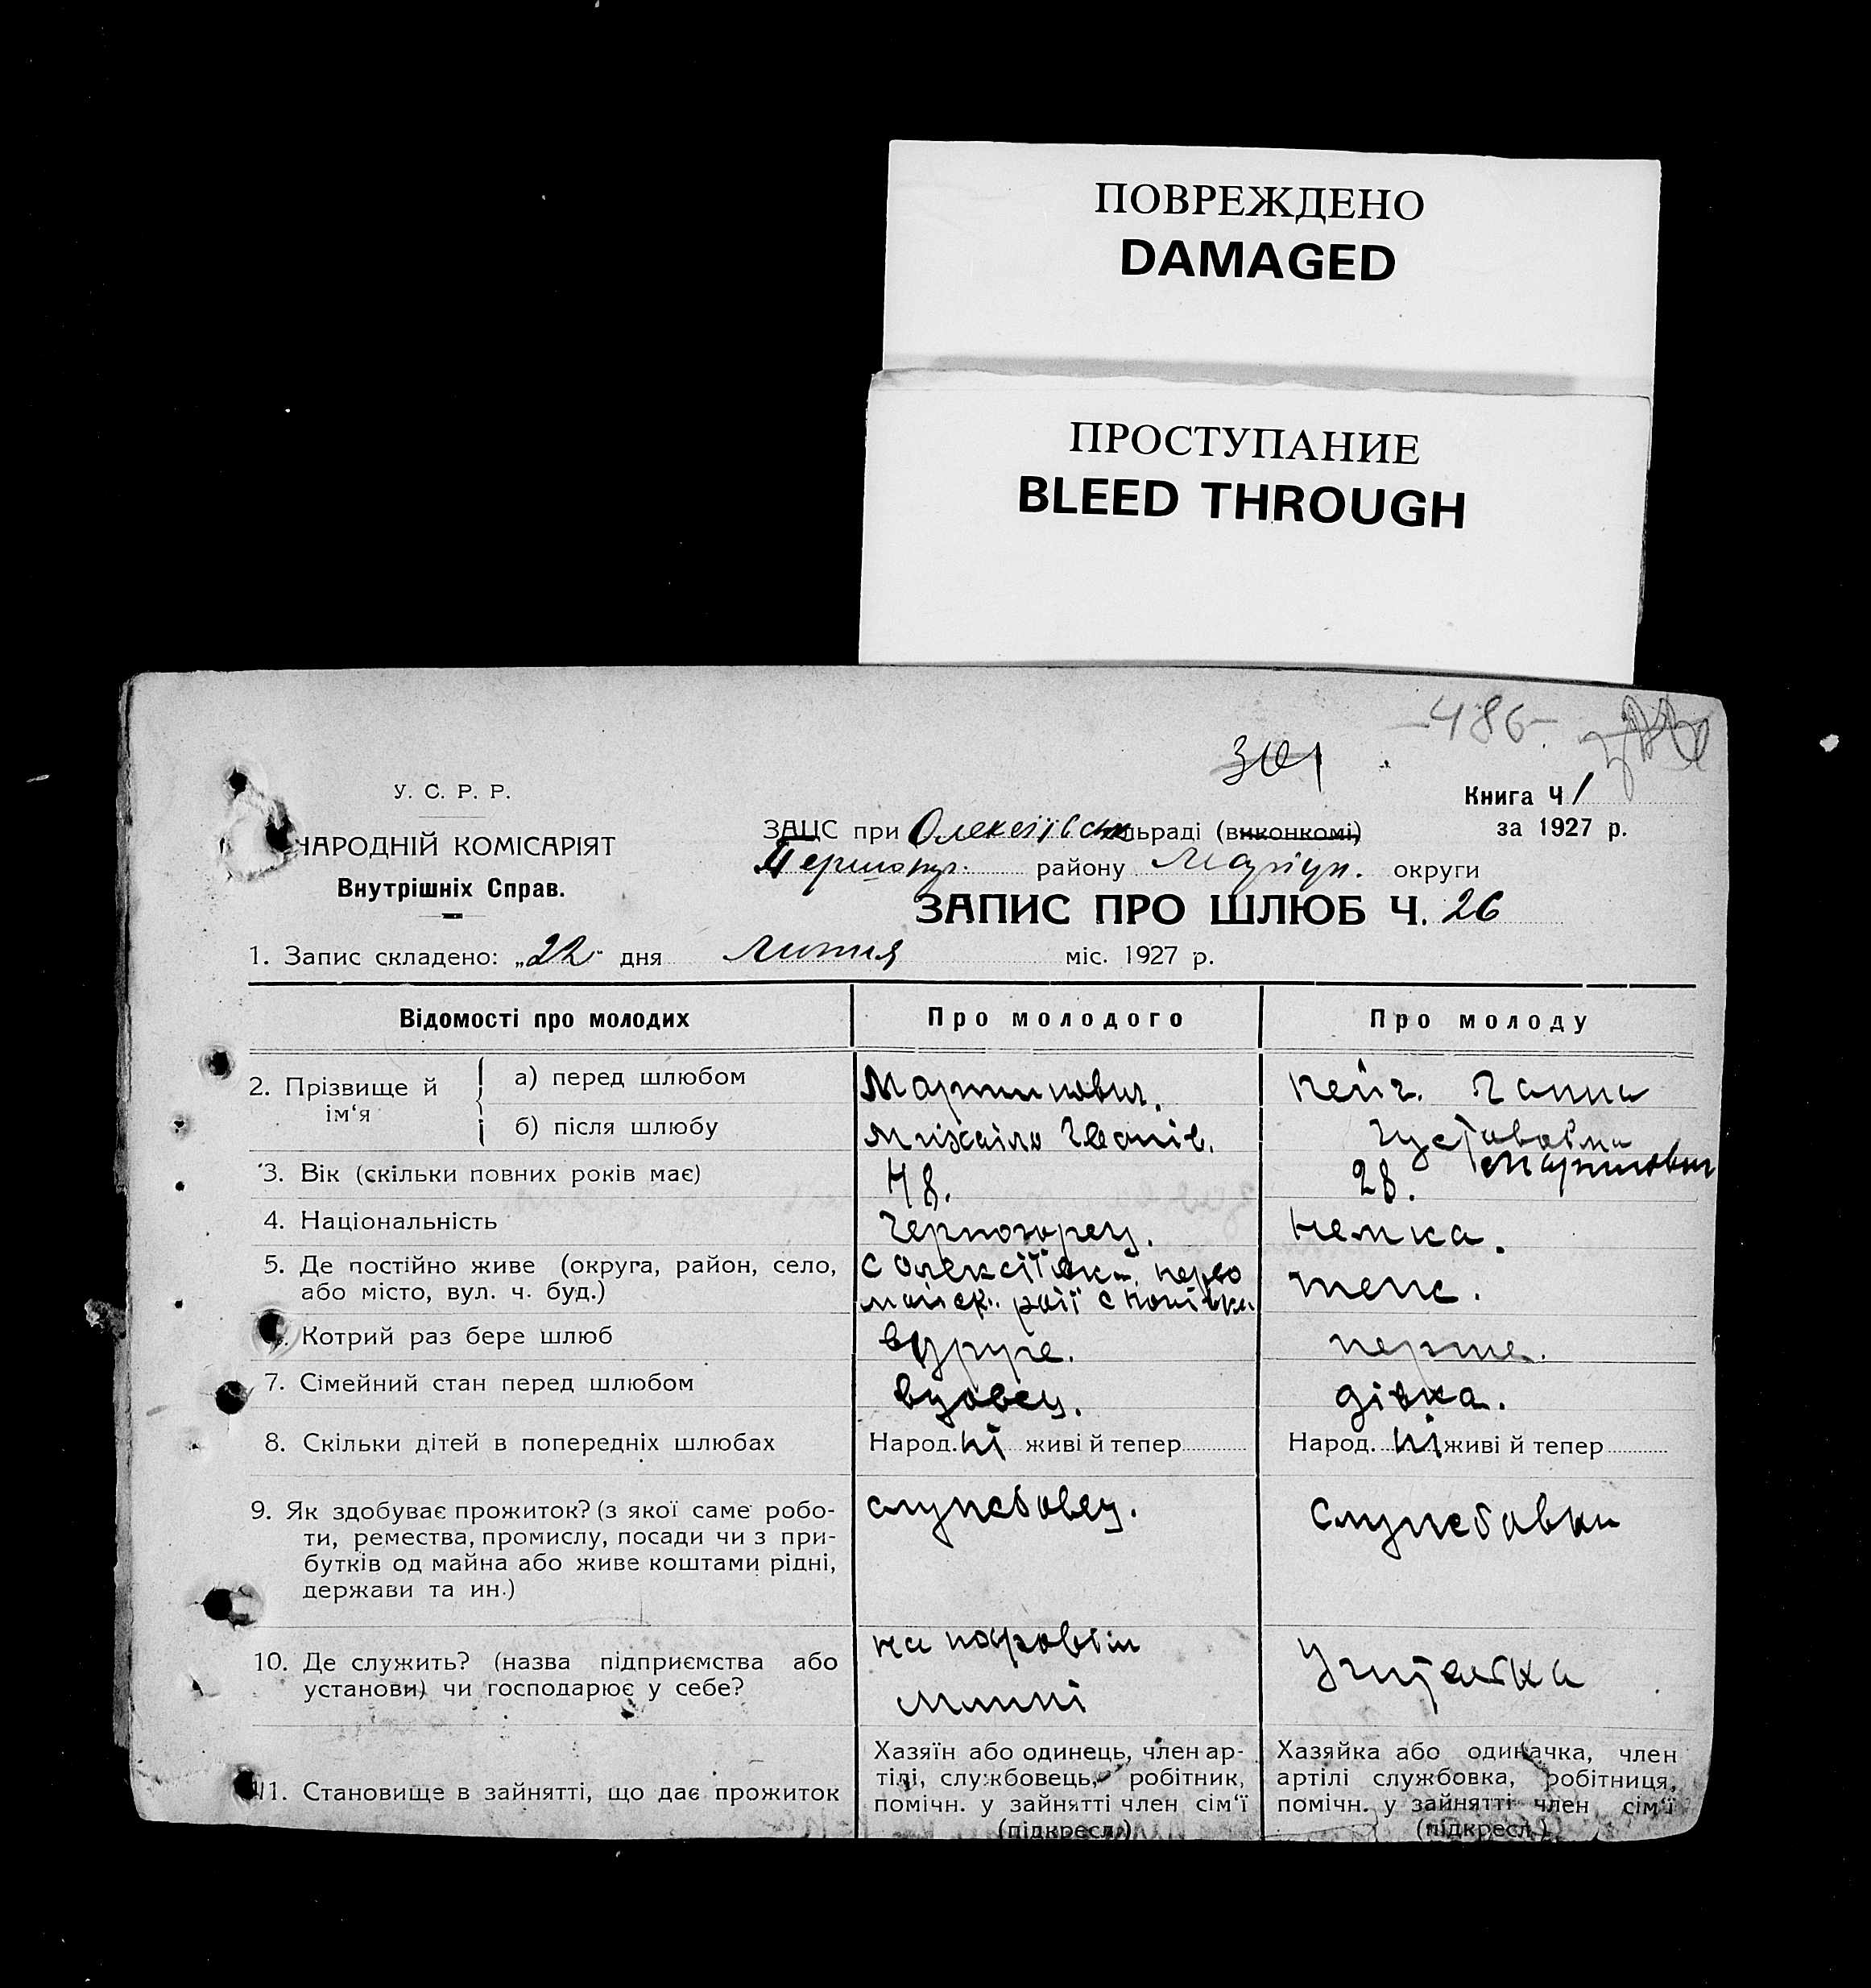 ПОВРЕЖДЕНО
DAMAGED
ПРОСТУПАНИЕ
BLEED THROUGH
-486-
301
У. С. Р. Р.
НАРОДНІЙ КОМІСАРІЯТ
Внутрішніх Справ.
Книга Ч 1
за 1927 р.
ЗАЦС при Олексіївськ льраді (виконкомі)
району Маріуп. округи
ЗАПИС ПРО ШЛЮБ Ч. 26
1. Запис складено: „22" дня Лютня міс. 1927 р.
Відомості про молодих Про молодого Про молоду
2. Прізвище й ім'я
а) перед шлюбом Мартинович. Кейч. Ганна
б) після шлюбу Михаіло Іванів. Густавовна Мартинович
3. Вік (скільки повних років має) 48. 28.
4. Національність Черногорец. Немка.
5. Де постійно живе (округа, район, село, або місто, вул. ч. буд.) с Олексіївка, перво майск. рай с теж.
6. Котрий раз бере шлюб вдруге. перше.
7. Сімейний стан перед шлюбом вдовец. дівка.
8. Скільки дітей в попередніх шлюбах Народ. ні живі й тепер Народ. ні живі й тепер
9. Як здобуває прожиток? (з якої саме робо-
ти, ремества, промислу, посади чи з при-
бутків од майна або живе коштами рідні,
держави та ин.)
служебовец. Служебовка
10. Де служить? (назва підприємства або
установи) чи господарює у себе?
на паровім
млині
Учителка
11. Становище в зайнятті, що дає прожиток
Хазяїн або одинець, член ар-
тілі, службовець, робітник,
помічн. у зайнятті член сім'ї
(підкресл.)
Хазяйка або одиначка, член
артілі службовка, робітниця,
помічн. у зайнятті член сім'ї
(підкресл.)